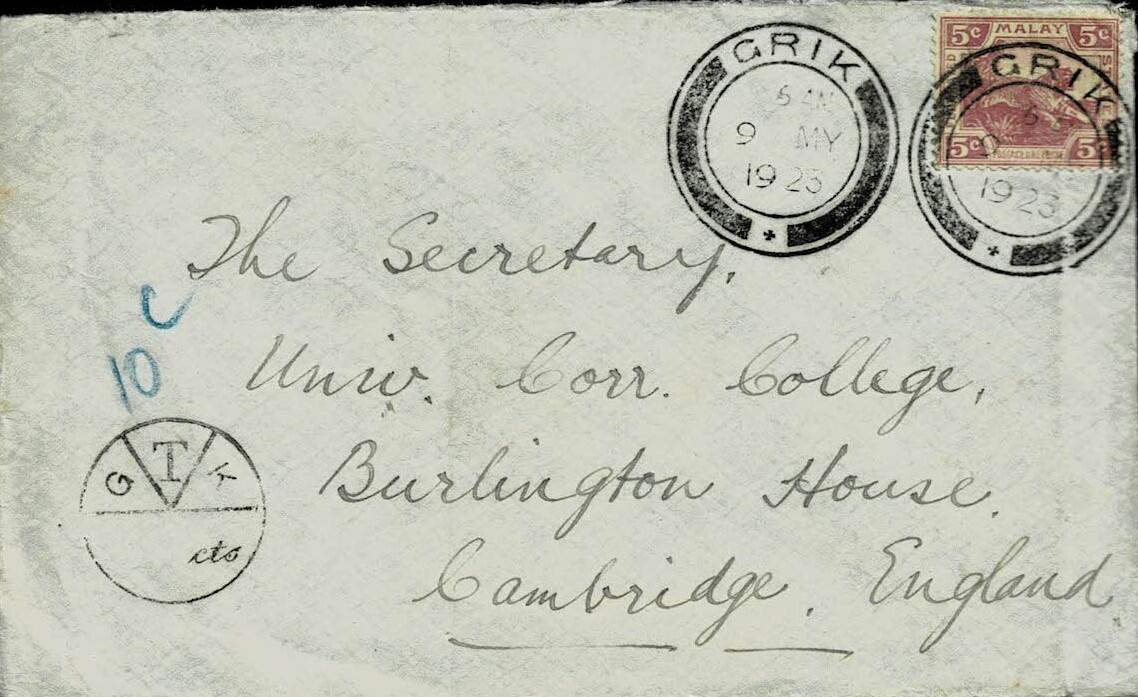 5c MALAY 5c
5c 5c
GRIK
5 AM
9 MY
1923
GRIK
1923
The Secretary,
10 c
Univ. Corr. College,
G T K
Burlington House.
cts
Cambridge. England